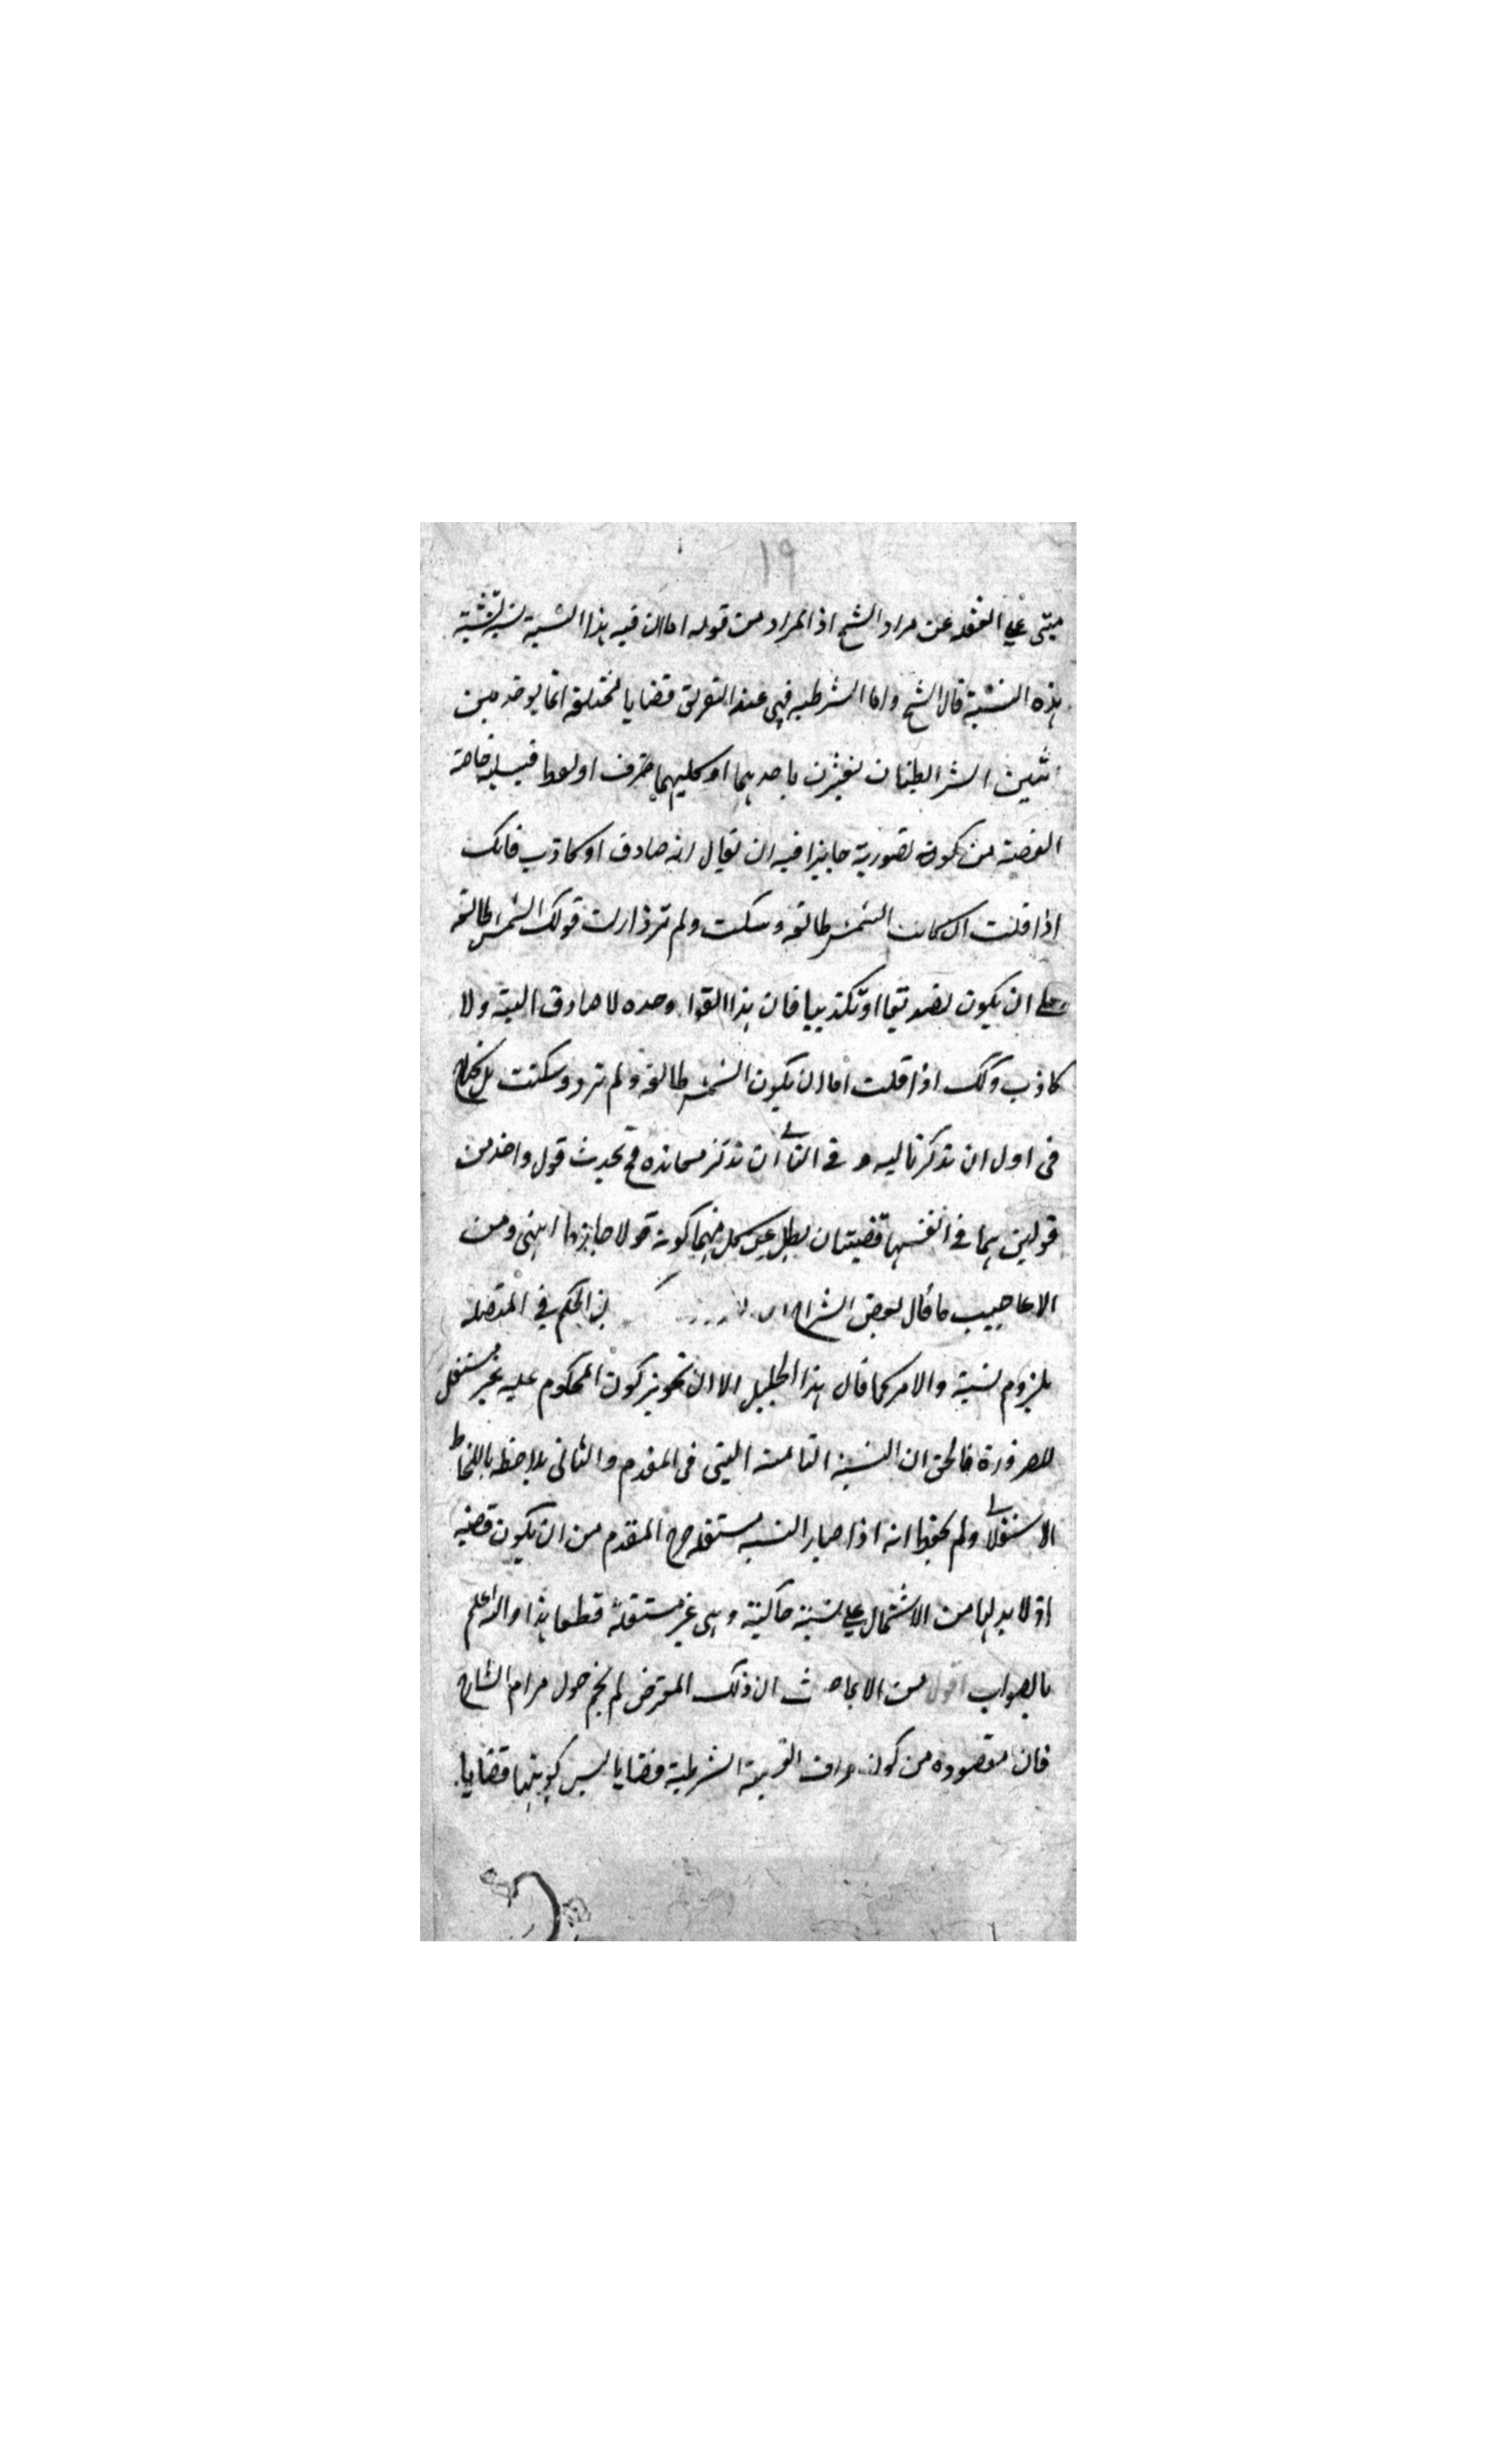 ١٩
مبنى على الغفلة عن مراد الشيخ اذ المراد من قوله اما ان فيه هذا النسبة
هذه النسبة قال الشيخ واما الشرطيه فهي عند التفريق قضايا مختلفة انما يوخذ من
اثنين الشرايط يقترن باحدهما او كليهما حرف او لفظ خاصة
القضية من كونه تصورية جايزا فيه ان يقال انه صادق او كاذب فانك
اذا قلت ان كانت الشمس طالعة وسكت ولم ترد قولك الشمس طالعة
على ان يكون تصديقا او تكذيبا فان هذا القول وحده لا صادق البتة ولا
كاذب وكك اذا قلت اما ان يكون الشمس طالعة ولم ترد وسكت بل تحتاج
في اول ان تذكر تاليه و في الثاني ان تذكر معانده فح يحدث قول واحد من
قولين هما في انفسهما قضيتان بطل عن كل منهما كونه قولا جازما انتهى ومن
الاعاجيب ما قال بعض الشراح ان الحكم في المتصلة
بلزوم نسبة والامر كما قال هذا الجليل الا ان تجويز كون المحكوم عليه غير مستقل
للضرورة فالحق ان النسبة التامة التي في المقدم والتالي ملاحظه باللحاظ
الاستقلالي ولم يحفظ انه اذا صار النسبة مستقلة خرج المقدم من ان يكون قضية
اذ لا بد لها من الاشتمال على نسبة حاكية وهي غير مستقلة قطعا هذا والله اعلم
بالصواب اقول من الاعاجيب ان ذلك المعترض لم يحم حول مرام الشارح
فان مقصوده من كون اطراف القضية الشرطية قضايا ليس كونها قضايا